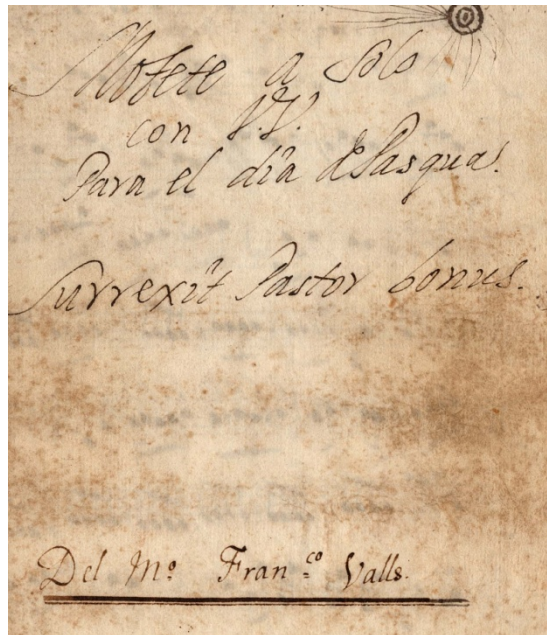 Motete a Solo
con VV.
Para el dia de Pasqua.
Surrexit Pastor bonus.
Del Mo. Fran.co Valls.